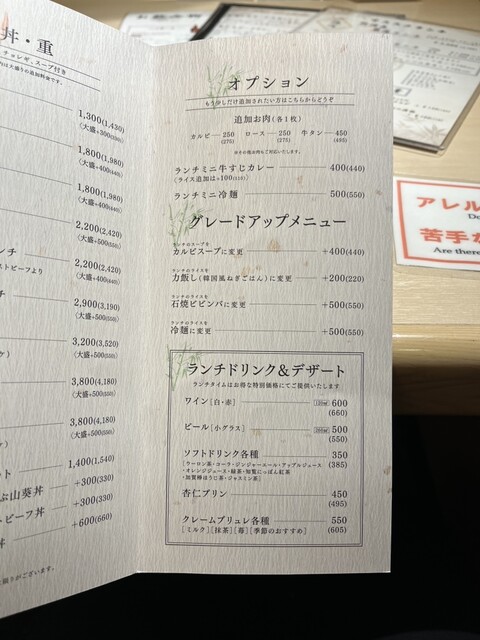 丼・重
チョレギ、スープ付き
1,300(1,430)
1,800(1,980)
1,800(1,980)
2,200(2,420)
〈大盛+500(550)〉
ンチ
ストビーフより
2,200(2,420)
チ
2,900(3,190)
〈大盛+500(550)〉
3,200(3,520)
〈大盛+500(550)〉
3,800(4,180)
〈大盛+500(550)〉
3,800(4,180)
〈大盛+500(550)〉
ット
1,400(1,540)
ぶ山葵丼
+300(330)
トビーフ丼
+300(330)
丼
+600(660)
オプション
もう少しだけ追加されたい方はこちらからどうぞ
追加お肉(各1枚)
カルビ 250 ロース 250 牛タン 450
(275) (275) (495)
ランチミニ牛すじカレー 400(440)
〈ライス追加は+100(110)〉
ランチミニ冷麺 500(550)
グレードアップメニュー
ランチのスープを
カルビスープに変更 +400(440)
ランチのライスを
力飯し(韓国風ねぎごはん)に変更 +200(220)
ランチのライスを
石焼ビビンバに変更 +500(550)
ランチのライスを
冷麺に変更 +500(550)
ランチドリンク&デザート
ランチタイムはお得な特別価格にてご提供いたします
ワイン[白・赤] 600
(660)
ビール[小グラス] 500
(550)
ソフトドリンク各種 350
[ウーロン茶・コーラ・ジンジャーエール・アップルジュース (385)
・オレンジジュース・緑茶・知覧にっぽん紅茶
・加賀棒ほうじ茶・ジャスミン茶]
杏仁プリン 450
(495)
クレームブリュレ各種 550
[ミルク][抹茶][苺][季節のおすすめ] (605)
アレル
Do
苦手な
Are there